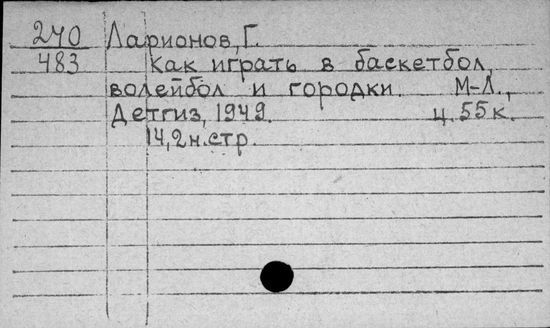 240 Ларионов, Г.
483 Как играть в баскетбол,
волейбол и городки. М-Л.,
Детгиз, 1949. ц. 55к.
14,2н.стр.